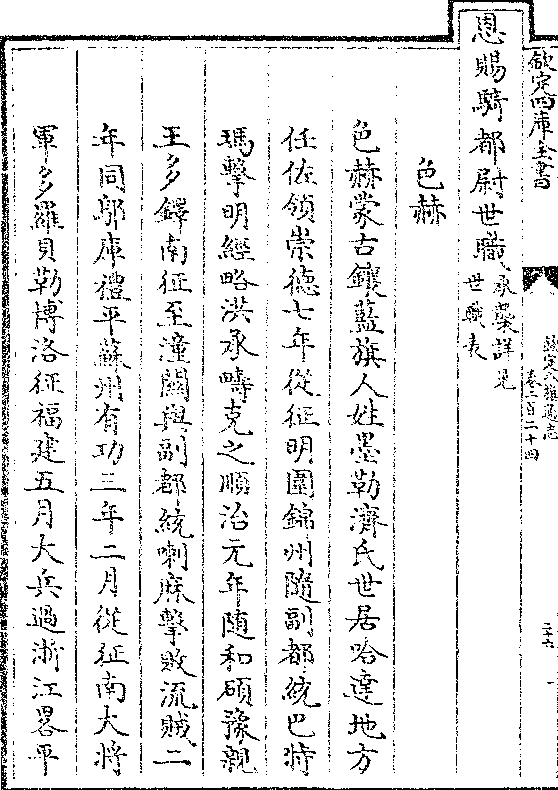 欽定四庫全書
欽定八旗通志
卷二百二十四
三十六
恩賜騎都尉世職
承襲詳見
世職表
色赫
色赫蒙古鑲藍旗人姓墨勒濟氏世居哈達地方
任佐領崇德七年從征明圍錦州隨副都統巴特
瑪擊明經略洪承疇克之順治元年隨和碩豫親
王多鐸南征至潼關與副都統喇麻擊敗流賊二
年同鄔庫禮平蘇州有功三年二月從征南大將
軍多羅貝勒博洛征福建五月大兵過浙江畧平